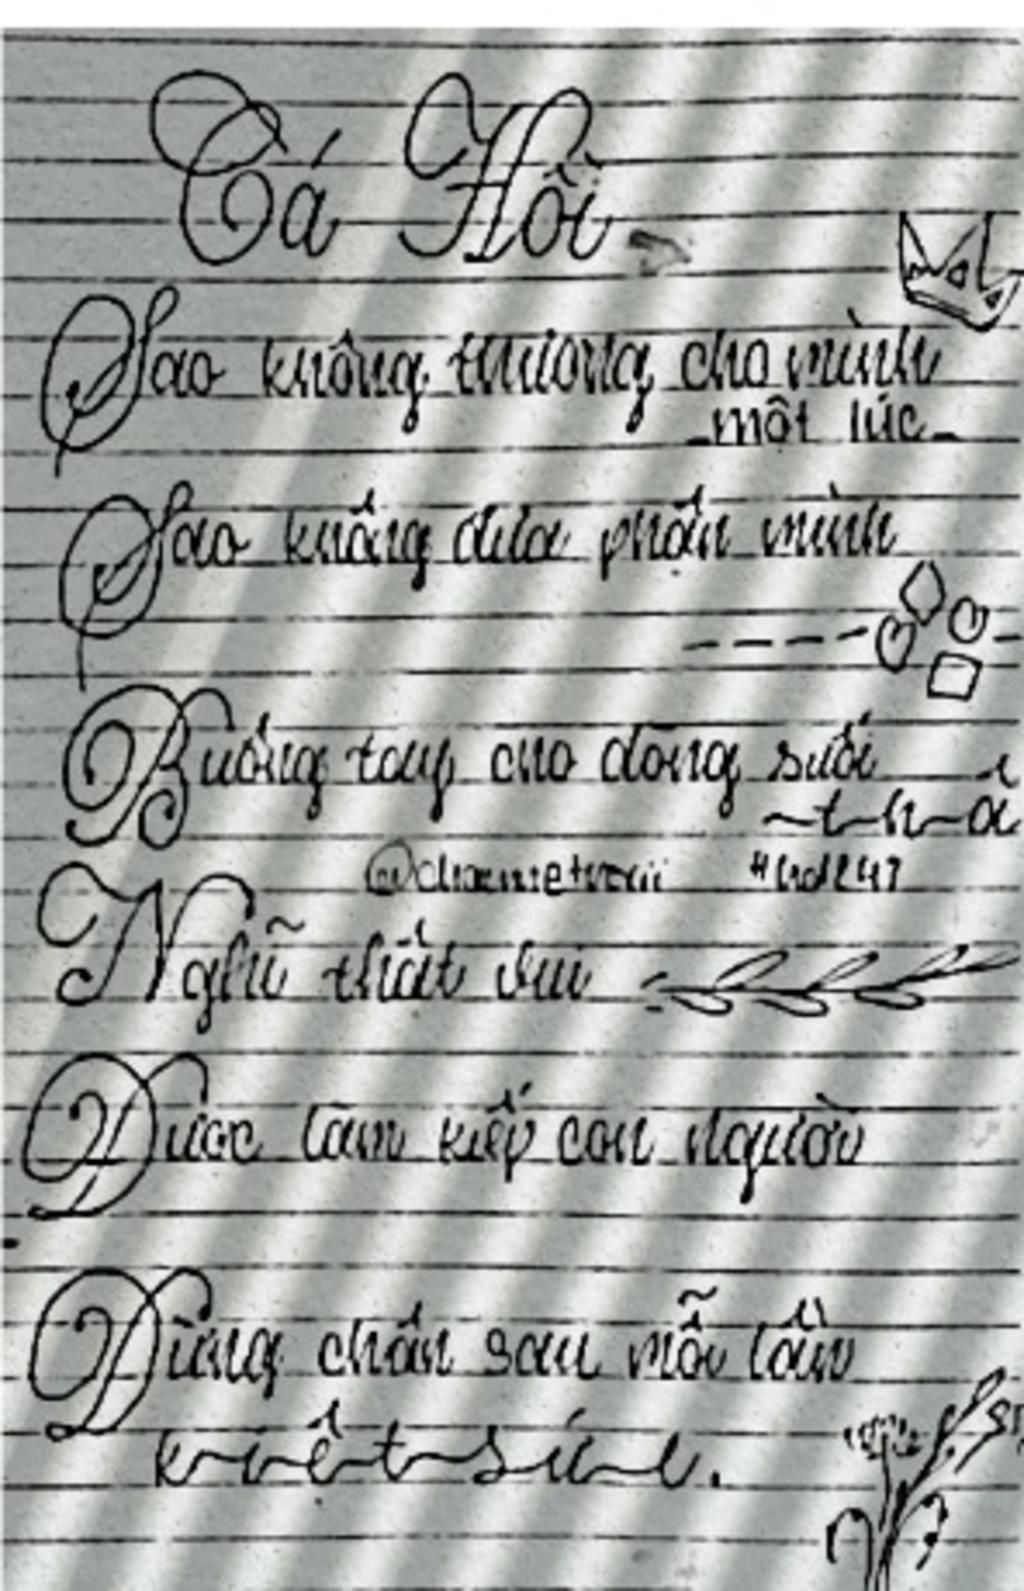 Cá Hồi
Sao không thương cho mình
một lúc
Sao không đưa phận mình
Buông tay cho dòng suối
thả
Nghĩ thật vui
Được làm kiếp con người
Dừng chân sau mỗi lần
kiệt sức.